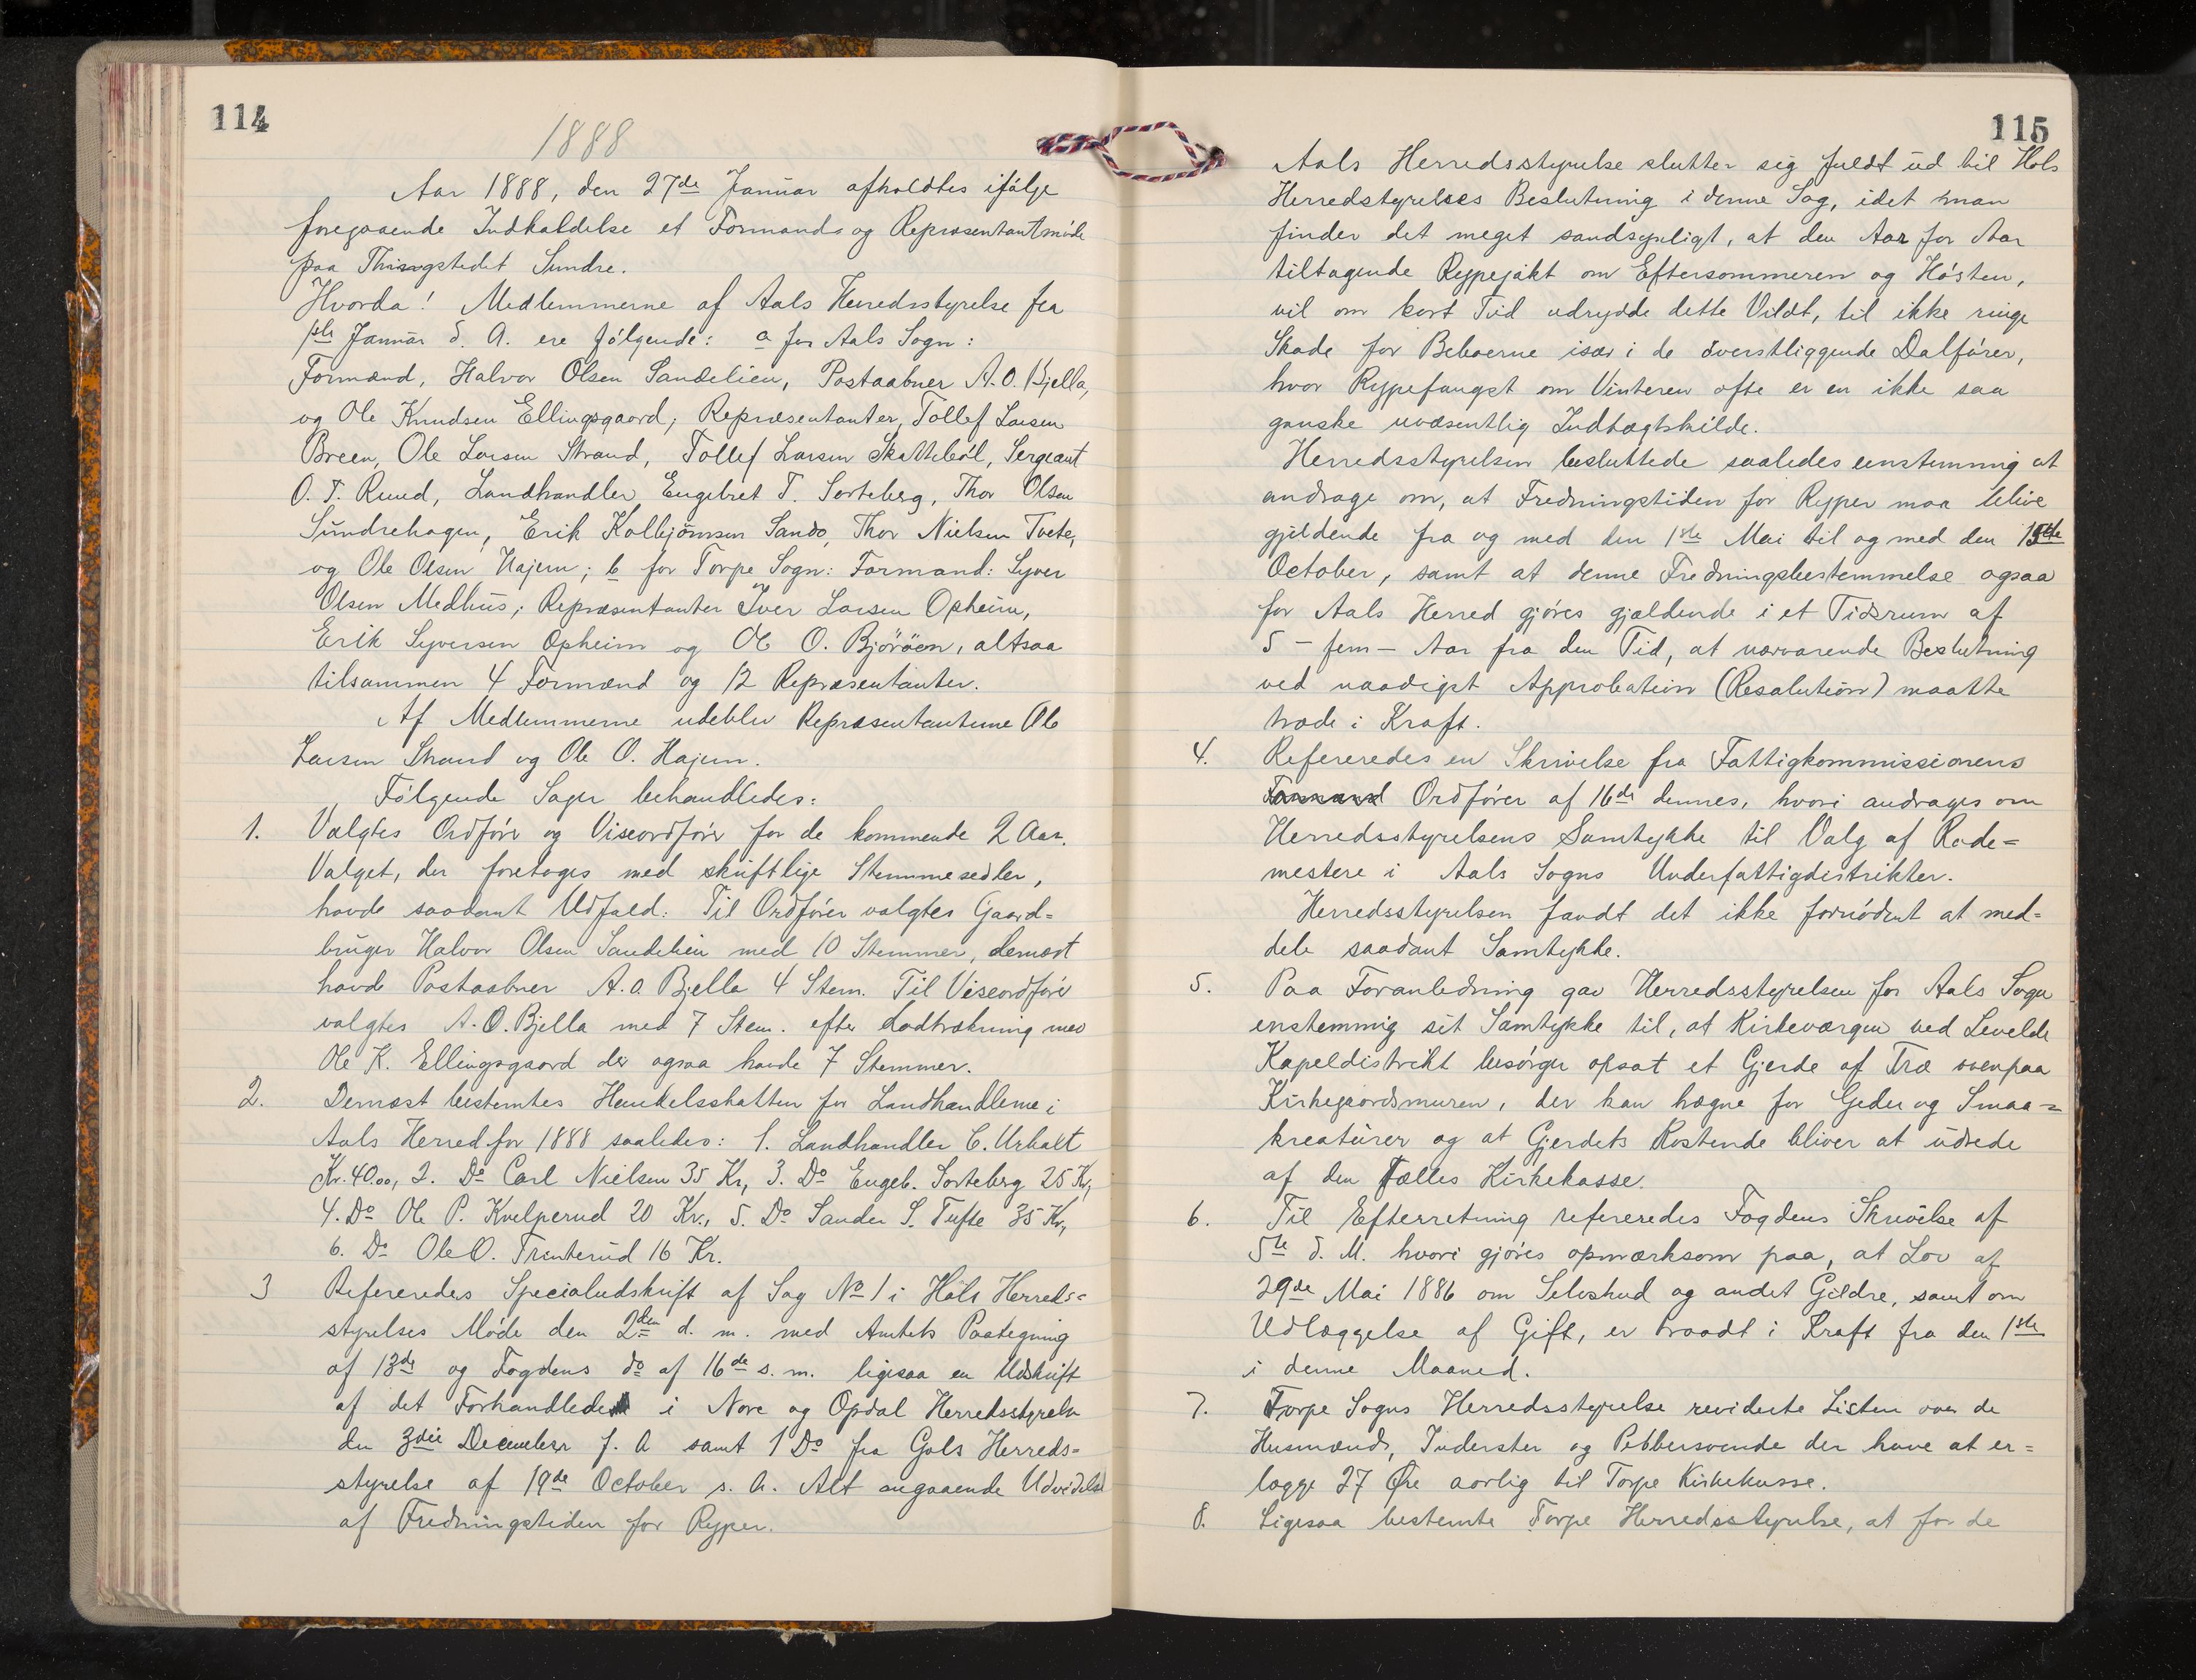 114
1888
Aar 1888, den 27de Januar afholdtes ifølge
foregaaende Indkaldelse et Formands og Repræsentantmøde
paa Thinogstedet Sundre.
Hvorda! Medlemmerne af Aals Herredsstyrelse fra
1ste Januar d. A. ere følgende: a for Aals Sogn:
Formænd, Halvor Olsen Sandelien, Postaabner A. O. Bjella,
og Ole Knudsen Ellingsgaard; Repræsentanter, Tollef Larsen
Breen, Ole Larsen Strand, Tollef Larsen Skattebøl, Sergeant
O. T. Ruud, Landhandler Engebret T. Sorteberg, Thor Olsen
Sundrehagen, Erik Kolbjørnsen Sando, Thor Nielsen Tveto,
og Ole Olsen Hajem; b for Torpe Sogn: Formand: Syver
Olsen Medhus; Repræsentanter Iver Larsen Opheim,
Erik Syversen Opheim og Ole O. Bjøröen, altsaa
tilsammen 4 Formænd og 12 Repræsentanter.
Af Medlemmerne udeblev Repræsentanterne Ole
Larsen Strand og Ole O. Hajem.
Følgende Sager behandledes:
1. Valgtes Ordfører og Viseordfører for de kommende 2 Aar.
Valget, der foretoges med skriftlige Stemmesedler,
havde saadant Udfald: Til Ordfører valgtes Gaard=
bruger Halvor Olsen Sandelien med 10 Stemmer, dernæst
havde Postaabner A. O. Bjella 4 Stem. Til Viseordfører
valgtes A. O. Bjella med 7 Stem. efter Lodtrækning med
Ole K. Ellingsgaard der ogsaa havde 7 Stemmer.
2. Dernæst bestemtes Handelsskatten for Landhandlerne i
Aals Herred for 1888 saaledes: 1. Landhandler C. Urhalt
Kr. 40.00, 2. Do Carl Nielsen 35 Kr, 3. Do Engeb. Sorteberg 25 Kr,
4. Do Ole P. Kvelperud 20 Kr., 5. Do Sander S. Tufte 35 Kr,
6. Do Ole O. Trinterud 16 Kr.
3 Refereredes Specialudskrift af Sag No 1 i Hols Herreds=
styrelses Møde den 2den d. m. med Amtets Paategning
af 13de og Fogdens do af 16de s. m. ligesaa en Udskrift
af det Forhandlede i Nore og Opdal Herredsstyrelse
den 3die December f. A samt 1 Do fra Gols Herreds=
styrelse af 19de October s. A. Alt angaaende Udvidelse
af Fredningstiden for Ryper.
115
Aals Herredsstyrelse slutter sig fuldt ud til Hols
Herredstyrelses Beslutning i denne Sag, idet man
finder det meget sandsynligt, at den Aar for Aar
tiltagende Rypejakt om Eftersommeren og Høsten,
vil om kort Tid udrydde dette Vildt, til ikke ringe
Skade for Beboerne især i de øverstliggende Dalfører,
hvor Rypefangst om Vinteren ofte er en ikke saa
ganske uvæsentlig Indtægtskilde.
Herredsstyrelsen besluttede saaledes eenstemmig at
andrage om, at Fredningstiden for Ryper maa blive
gjeldende fra og med den 1ste Mai til og med den 15de
October, samt at denne Fredningsbestemmelse ogsaa
for Aals Herred gjøres gjældende i et Tidsrum af
5 - fem - Aar fra den Tid, at nærværende Beslutning
ved naadigst Approbation (Resolution) maatte
træde i Kraft.
4. Refereredes en Skrivelse fra Fattigkommissionens
Formand Ordfører af 16de dennes, hvori andrages om
Herredsstyrelsens Samtykke til Valg af Rode=
mestere i Aals Sogns Underfattigdistrikter.
Herredsstyrelsen fandt det ikke fornødent at med=
dele saadant Samtykke.
5. Paa Foranledning gav Herredsstyrelsen for Aals Sogn
enstemmig sit Samtykke til, at Kirkeværgen ved Levelde
Kapeldistrikt besørger opsat et Gjerde af Træ ovenpaa
Kirkegaardsmuren, der kan hægne for Geder og Smaa=
kreaturer og at Gjerdets Kostende bliver at udrede
af den Fælles Kirkekasse.
6. Til Efterretning refereredes Fogdens Skrivelse af
5te d. M. hvori gjøres opmærksom paa, at Lov af
29de Mai 1886 om Selvskud og andet Gildre, samt om
Udlæggelse af Gift, er traadt i Kraft fra den 1ste
i denne Maaned.
7. Torpe Sogns Herredsstyrelse reviderte Listen over de
Husmænd, Inderster og Pebbersvende der have at er=
lægge 27 Øre aarlig til Torpe Kirkekasse.
8. Ligesaa bestemte Torpe Herredsstyrelse, at for de